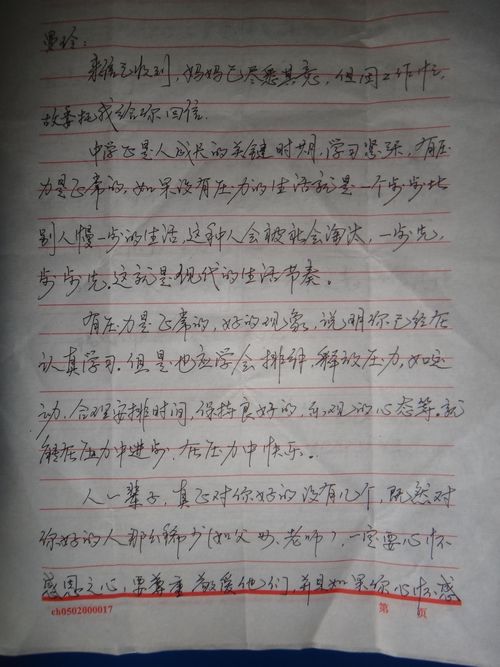 曼玲:
来信已收到,妈妈已尽悉其意,但因工作忙,
故委托我给你回信.
中学正是人成长的关键时期,学习紧张,有压
力是正常的,如果没有压力的生活就是一个步步比
别人慢一步的生活,这种人会被社会淘汰,一步先,
步步先。这就是现代的生活节奏。
有压力是正常的,好的现象,说明你已经在
认真学习.但是也应学会排解,释放压力,如运
动,合理安排时间,保持良好的,乐观的心态等。就
能在压力中进步,在压力中快乐。
人一辈子,真正对你好的没有几个,既然对
你好的人那么稀少(如父母、老师),一定要心怀
感恩之心,要尊重敬爱他们,并且如果你心怀感
ch0502000017 第 页